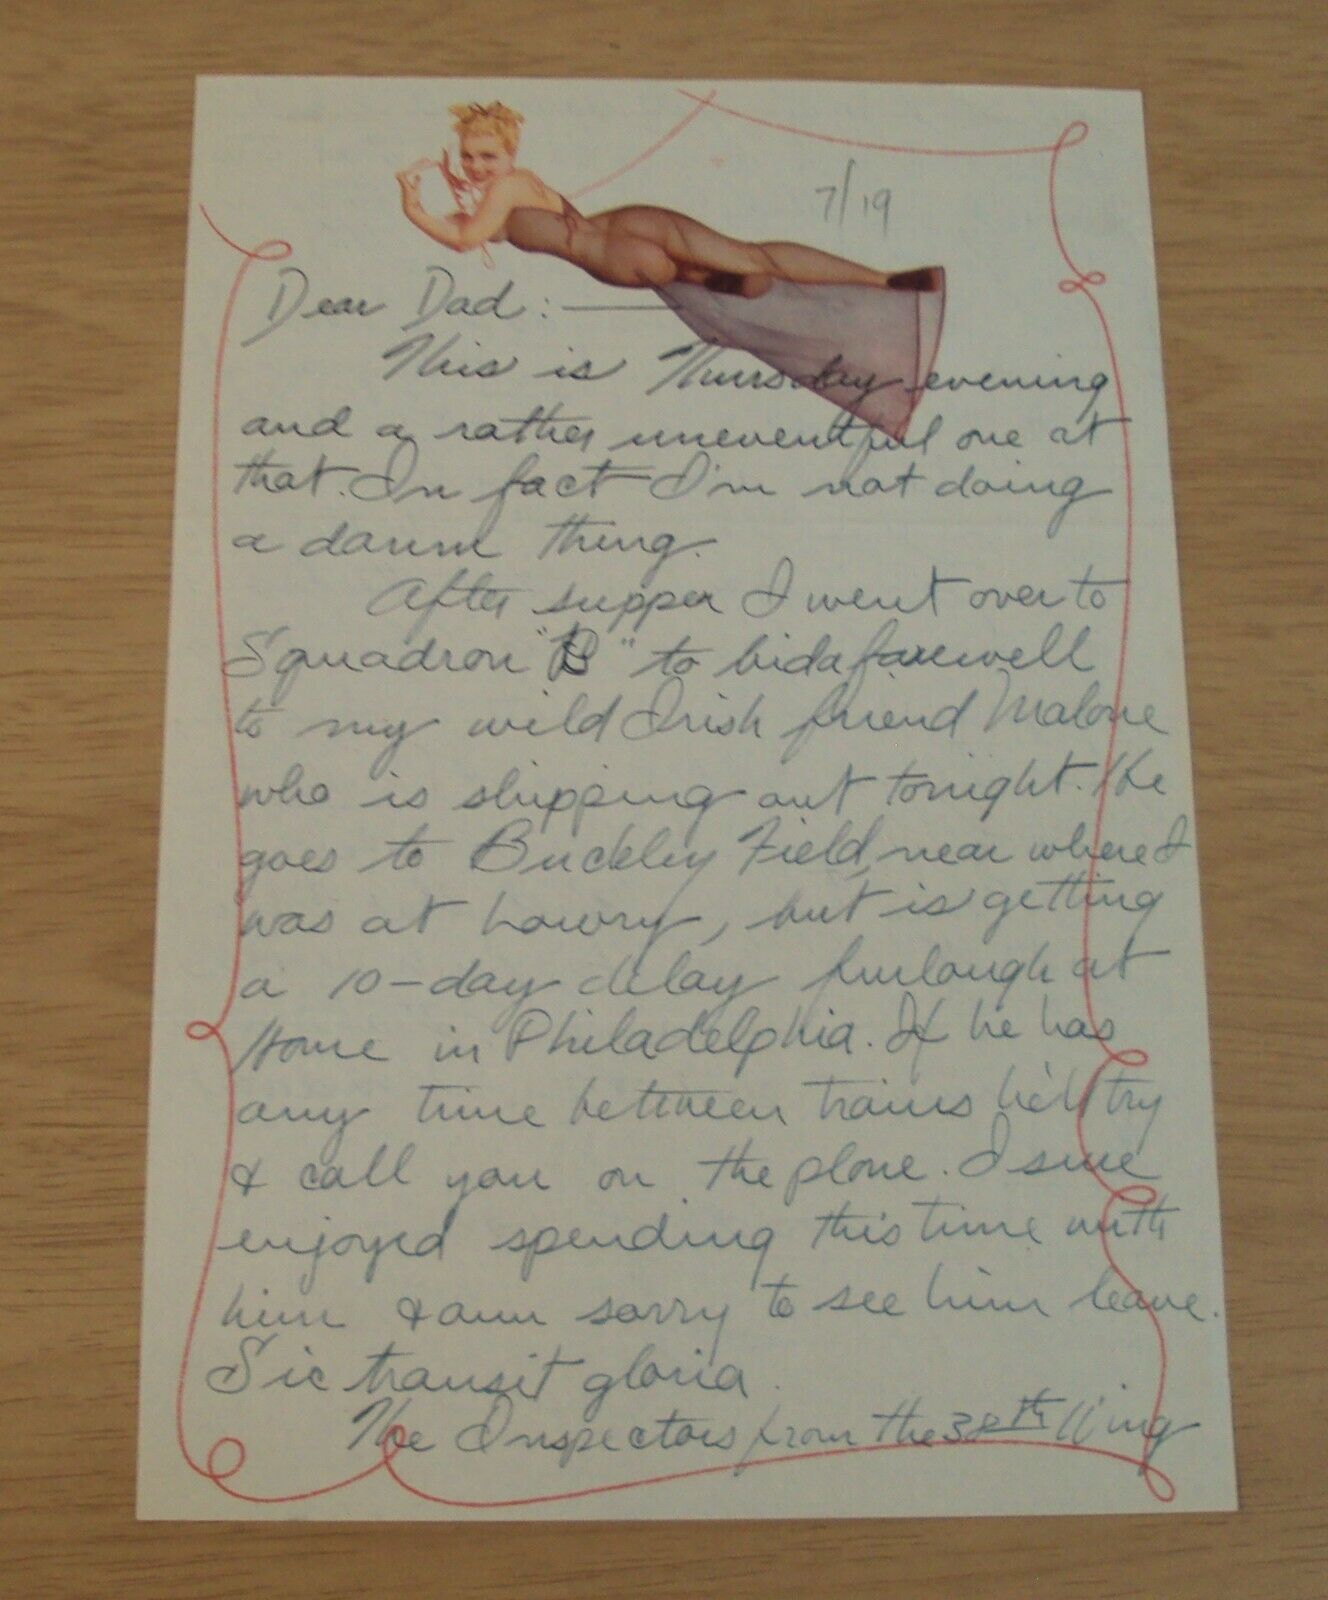 7/19
Dear Dad:
This is Thursday evening
and a rather uneventful one at
that. In fact I'm not doing
a damn thing.
After supper I went over to
Squadron "B" to bid a farewell
to my wild Irish friend Malone
who is shipping out tonight. He
goes to Buckley Field, near where I
was at Lowry, but is getting
a 10-day delay furlough at
Home in Philadelphia. If he has
any time between trains he'll try
& call you on the phone. I sure
enjoyed spending this time with
him & am sorry to see him leave.
Sic transit gloria.
The Inspectors from the 38th Wing